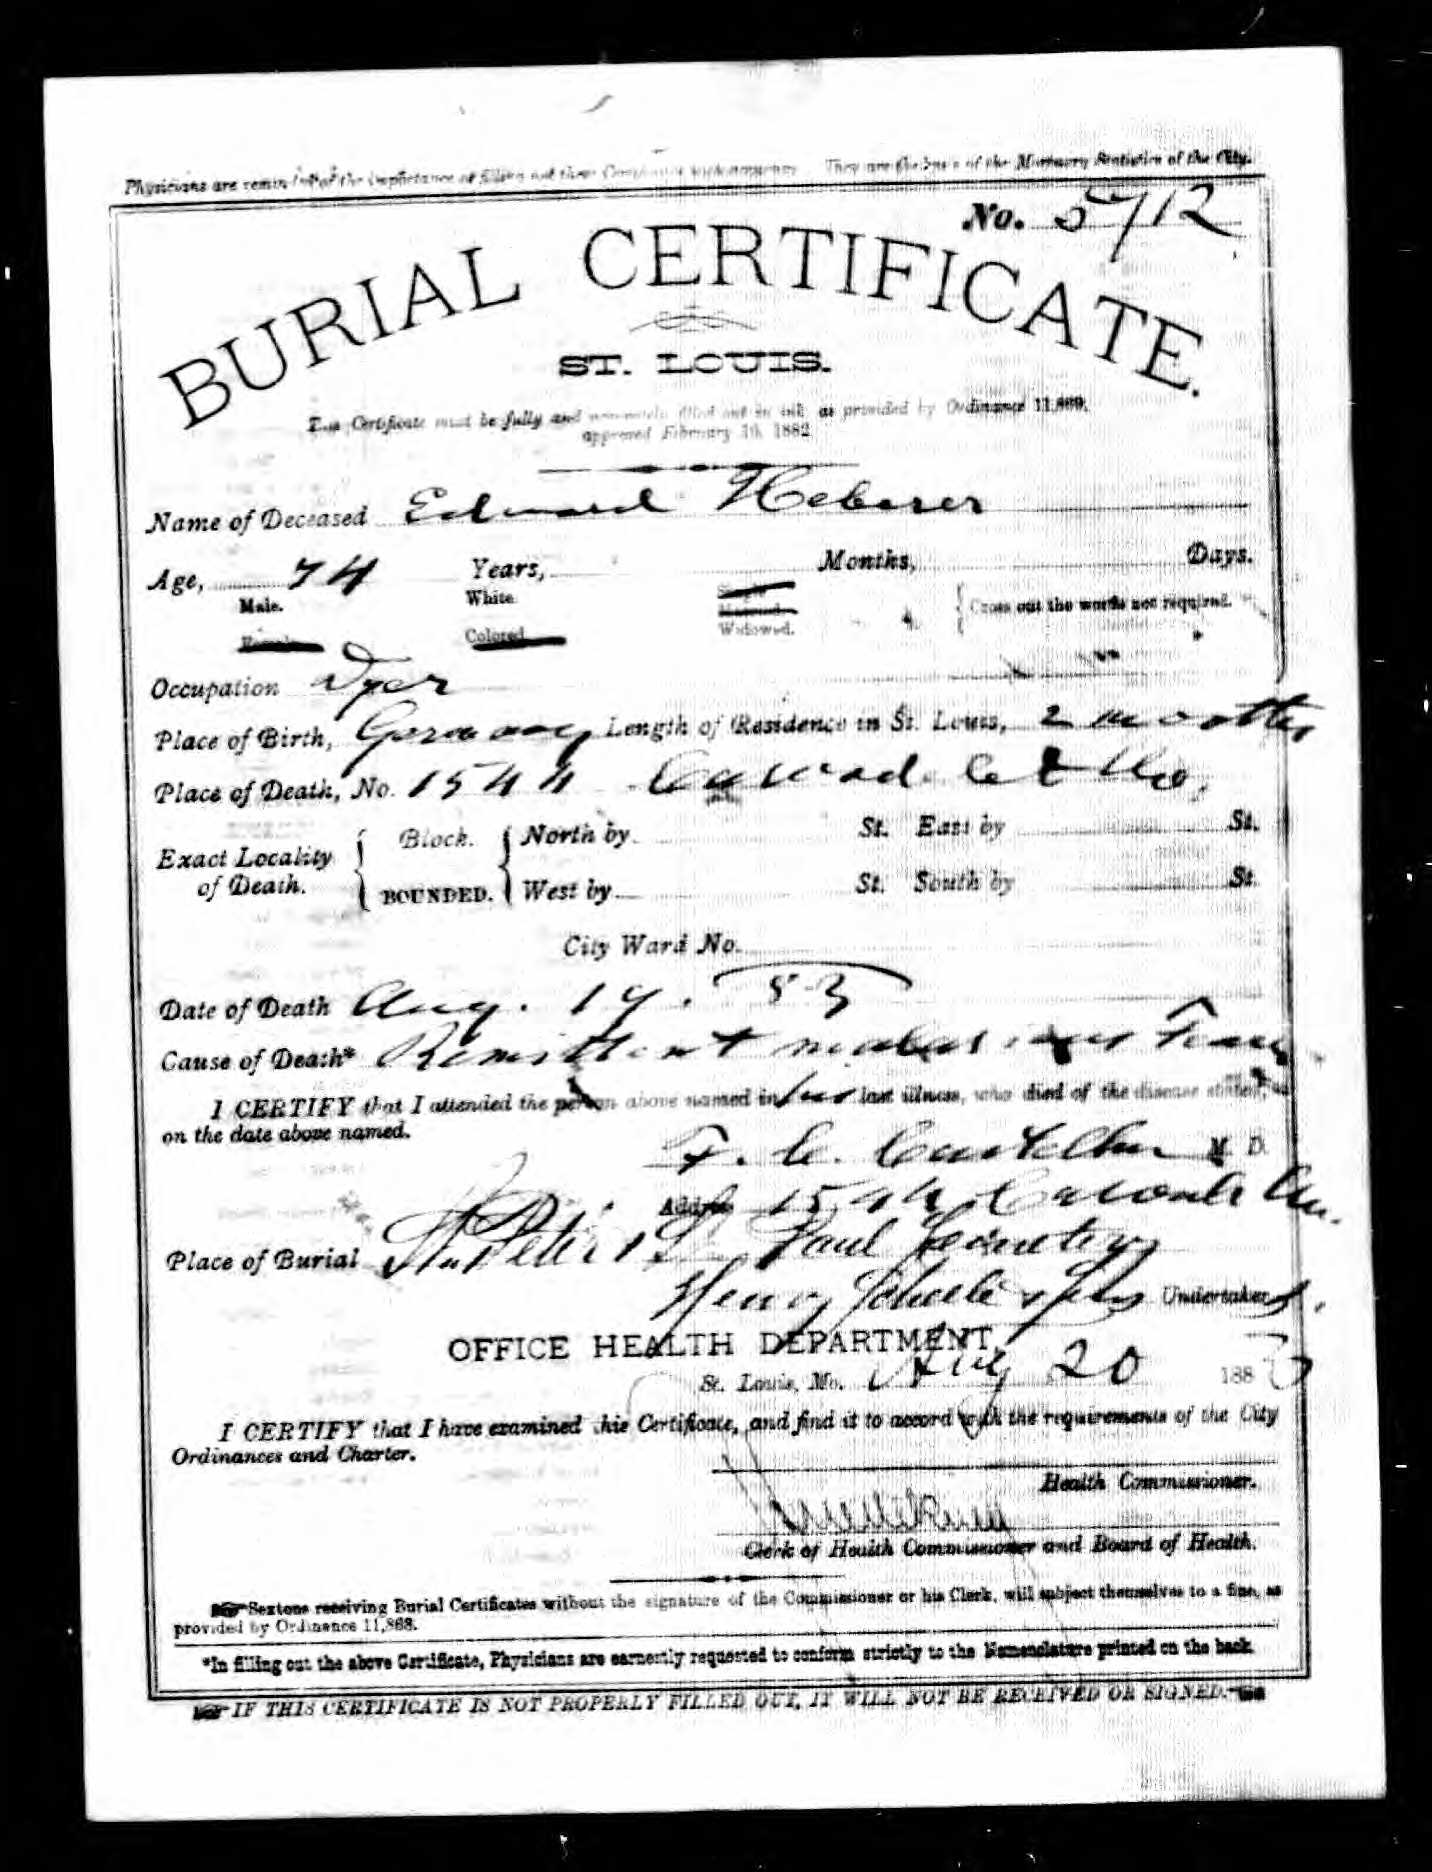 Physicians are reminded of the importance of filling out these Certificates with accuracy. They are the basis of the Mortuary Statistics of the City.
No. 5712
BURIAL CERTIFICATE.
ST. LOUIS.
This Certificate must be fully and accurately filled out in ink as provided by Ordinance 11,869,
approved February 1882
Name of Deceased Edward Heberer
Age, 74 Years, Months, Days.
Male. White. Single
Married. Cross out the words not required.
Female Colored Widowed.
Occupation Dyer
Place of Birth, Germany Length of Residence in St. Louis, 2 months
Place of Death, No. 1544
Exact Locality of Death. Block. BOUNDED. North by St. East by St.
West by St. South by St.
City Ward No.
Date of Death Aug. 19. 83
Cause of Death* Remittent malarious Fever
I CERTIFY that I attended the person above named in his last illness, who died of the disease stated,
on the date above named.
F. C. M. D.
Address 1544
Place of Burial St Peter & St Paul Cemetery
Henry Undertaker
OFFICE HEALTH DEPARTMENT,
St. Louis, Mo. Aug 20 1883
I CERTIFY that I have examined this Certificate, and find it to accord with the requirements of the City
Ordinances and Charter.
Health Commissioner.
Clerk of Health Commissioner and Board of Health.
Sextons receiving Burial Certificates without the signature of the Commissioner or his Clerk, will subject themselves to a fine, as
provided by Ordinance 11,868.
*In filling out the above Certificate, Physicians are earnestly requested to conform strictly to the Nomenclature printed on the back.
IF THIS CERTIFICATE IS NOT PROPERLY FILLED OUT, IT WILL NOT BE RECEIVED OR SIGNED.